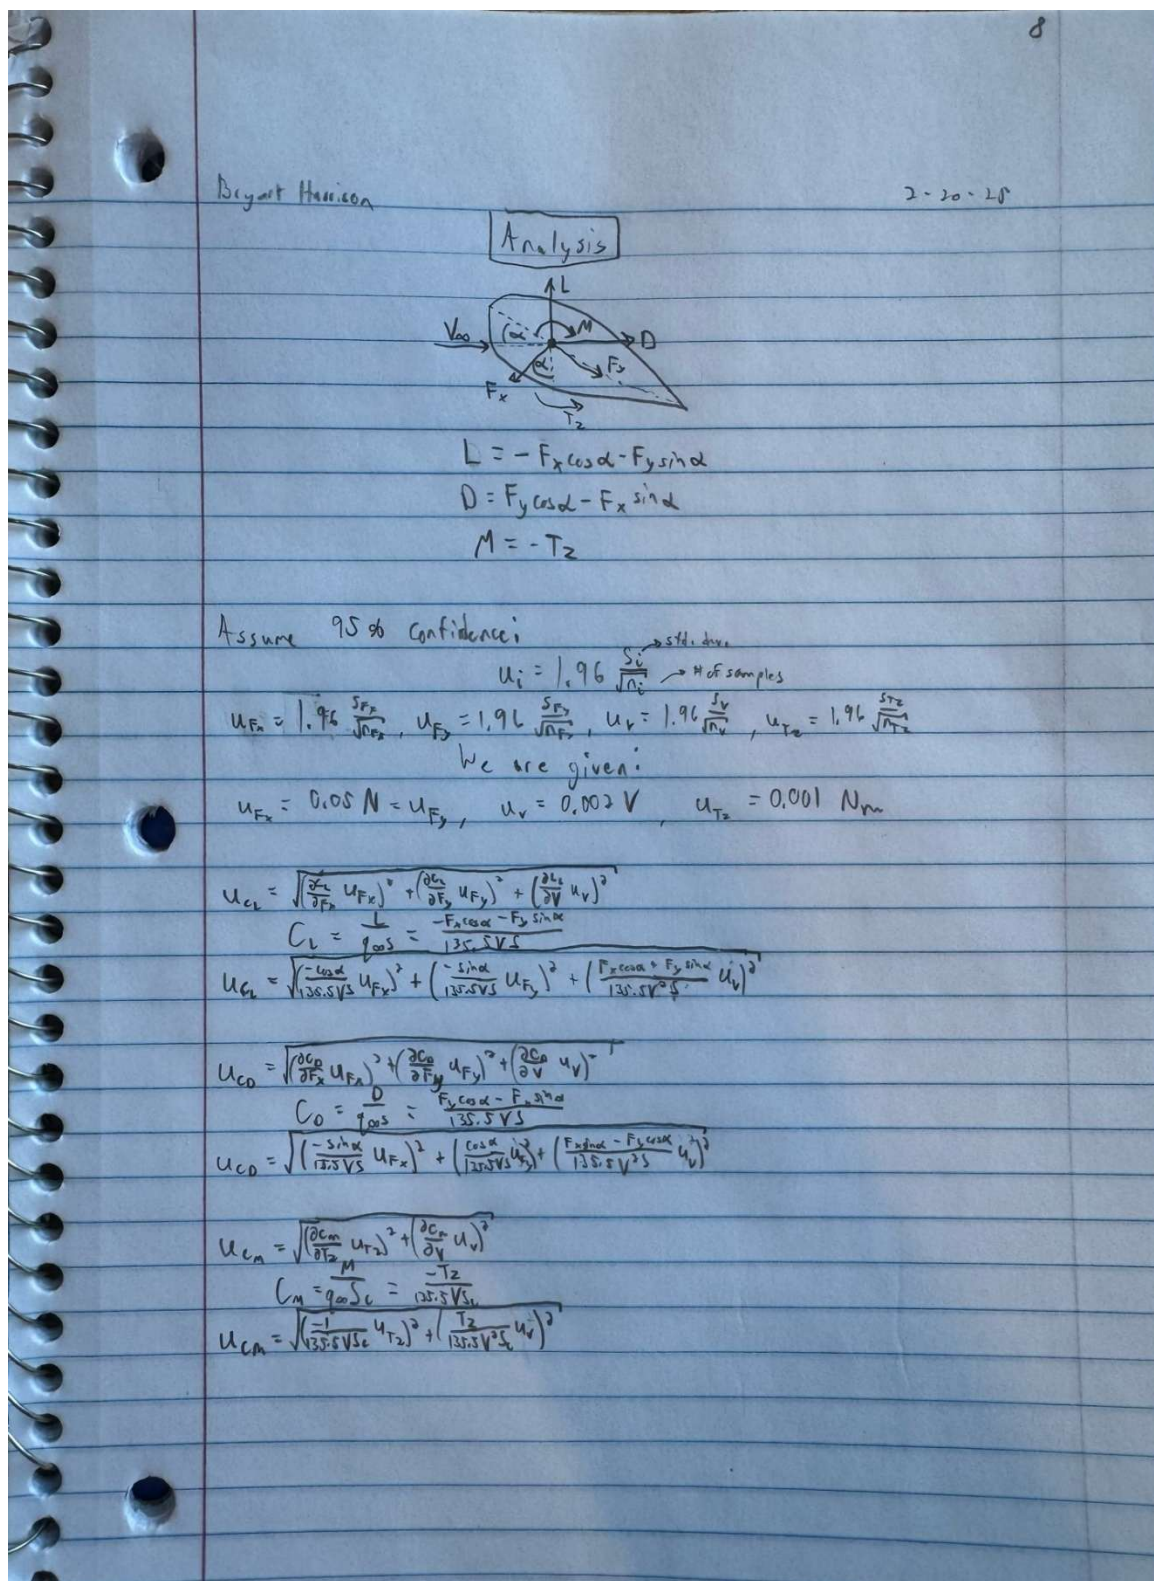 8
Bryant Harrison 2-20-25
Analysis
L
V∞ α M D
α Fy
Fx
Tz
L = -Fx cosα - Fy sinα
D = Fy cosα - Fx sinα
M = -Tz
Assume 95% confidence:
u_i = 1.96 S_i/√n_i → std. dev. → # of samples
u_Fx = 1.96 S_Fx/√n_Fx, u_Fy = 1.96 S_Fy/√n_Fy, u_v = 1.96 S_v/√n_v, u_Tz = 1.96 S_Tz/√n_Tz
We are given:
u_Fx = 0.05 N = u_Fy, u_v = 0.002 V, u_Tz = 0.001 Nm
u_CL = √((∂C_L/∂Fx u_Fx)² + (∂C_L/∂Fy u_Fy)² + (∂C_L/∂V u_v)²)
C_L = L/(q∞S) = (-Fx cosα - Fy sinα)/(135.5VS)
u_CL = √((-cosα/(135.5VS) u_Fx)² + (-sinα/(135.5VS) u_Fy)² + ((Fx cosα + Fy sinα)/(135.5V²S) u_v)²)
u_CD = √((∂C_D/∂Fx u_Fx)² + (∂C_D/∂Fy u_Fy)² + (∂C_D/∂V u_v)²)
C_D = D/(q∞S) = (Fy cosα - Fx sinα)/(135.5VS)
u_CD = √((-sinα/(135.5VS) u_Fx)² + (cosα/(135.5VS) u_Fy)² + ((Fx sinα - Fy cosα)/(135.5V²S) u_v)²)
u_CM = √((∂C_m/∂Tz u_Tz)² + (∂C_m/∂V u_v)²)
C_m = M/(q∞Sc) = -Tz/(135.5VSc)
u_CM = √((-1/(135.5VSc) u_Tz)² + (Tz/(135.5V²Sc) u_v)²)